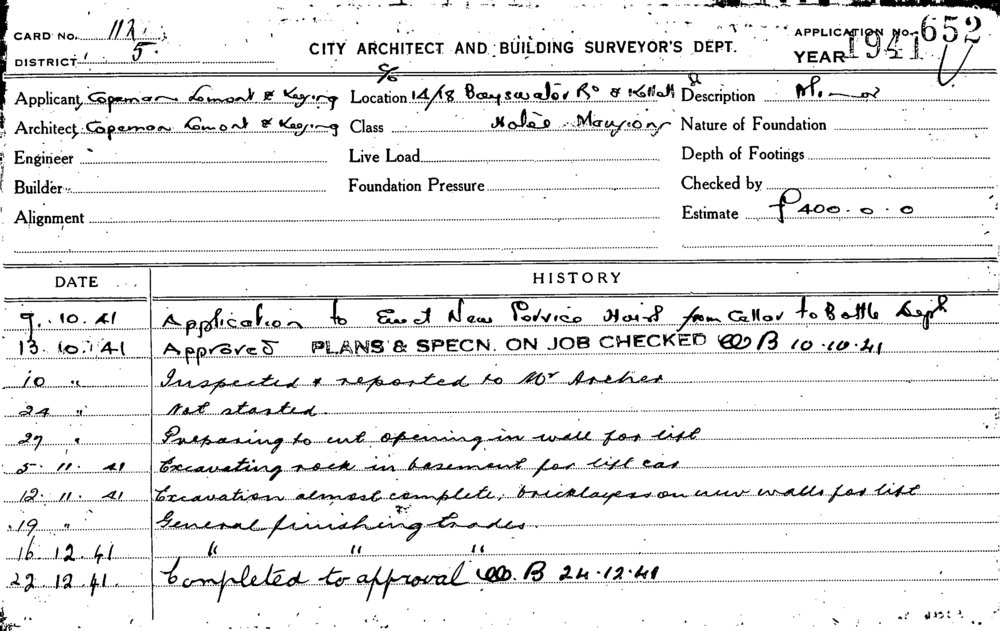 CARD No. 112
DISTRICT 5.
CITY ARCHITECT AND BUILDING SURVEYOR'S DEPT.
APPLICATION No. 652
YEAR 1941
Applicant Copeman Lemont & Keesing Location c/o 14/18 Bayswater Rd & Kellett St Description Minor
Architect Copeman Lemont & Keesing Class Hotel Mansions Nature of Foundation
Engineer Live Load Depth of Footings
Builder Foundation Pressure Checked by
Alignment Estimate £400.0.0
DATE HISTORY
9.10.41 Application to Erect New Service Hoist from Cellar to Bottle Dept
13.10.41 Approved PLANS & SPECN. ON JOB CHECKED B 10.10.41
10 " Inspected & reported to Mr Archer
24 " Not started.
27 " Preparing to cut opening in wall for lift
5.11.41 Excavating rock in basement for lift car
12.11.41 Excavation almost complete, bricklayers on new walls for lift
19 " General finishing trades.
16.12.41 " " "
22.12.41. Completed to approval B 24.12.41